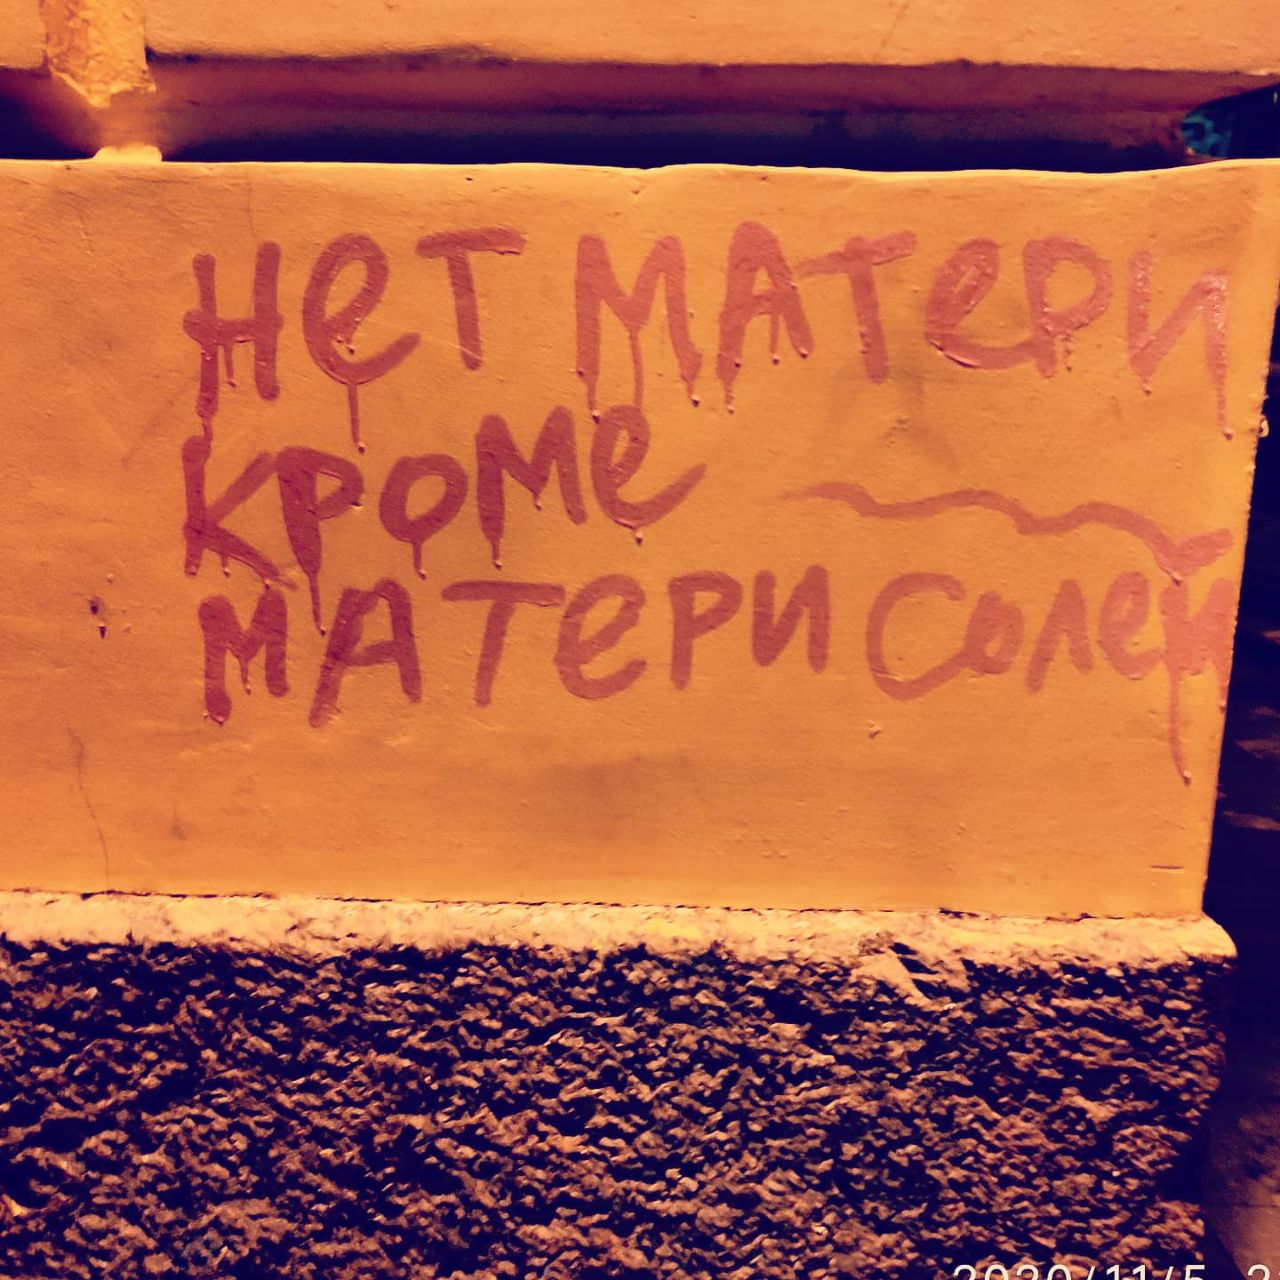 нет матери
кроме
матери солей
2020/11/5